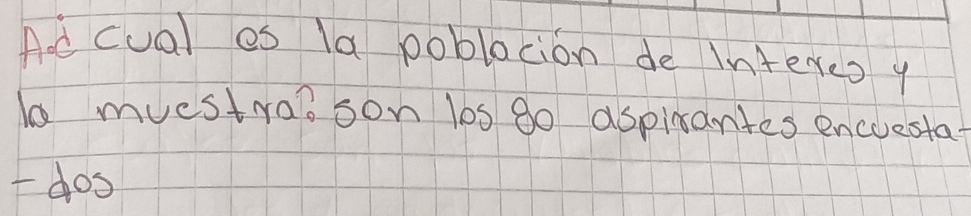 A.¿ cual es la población de Interes y
la muestra? son los 80 aspirantes encuesta-
-dos